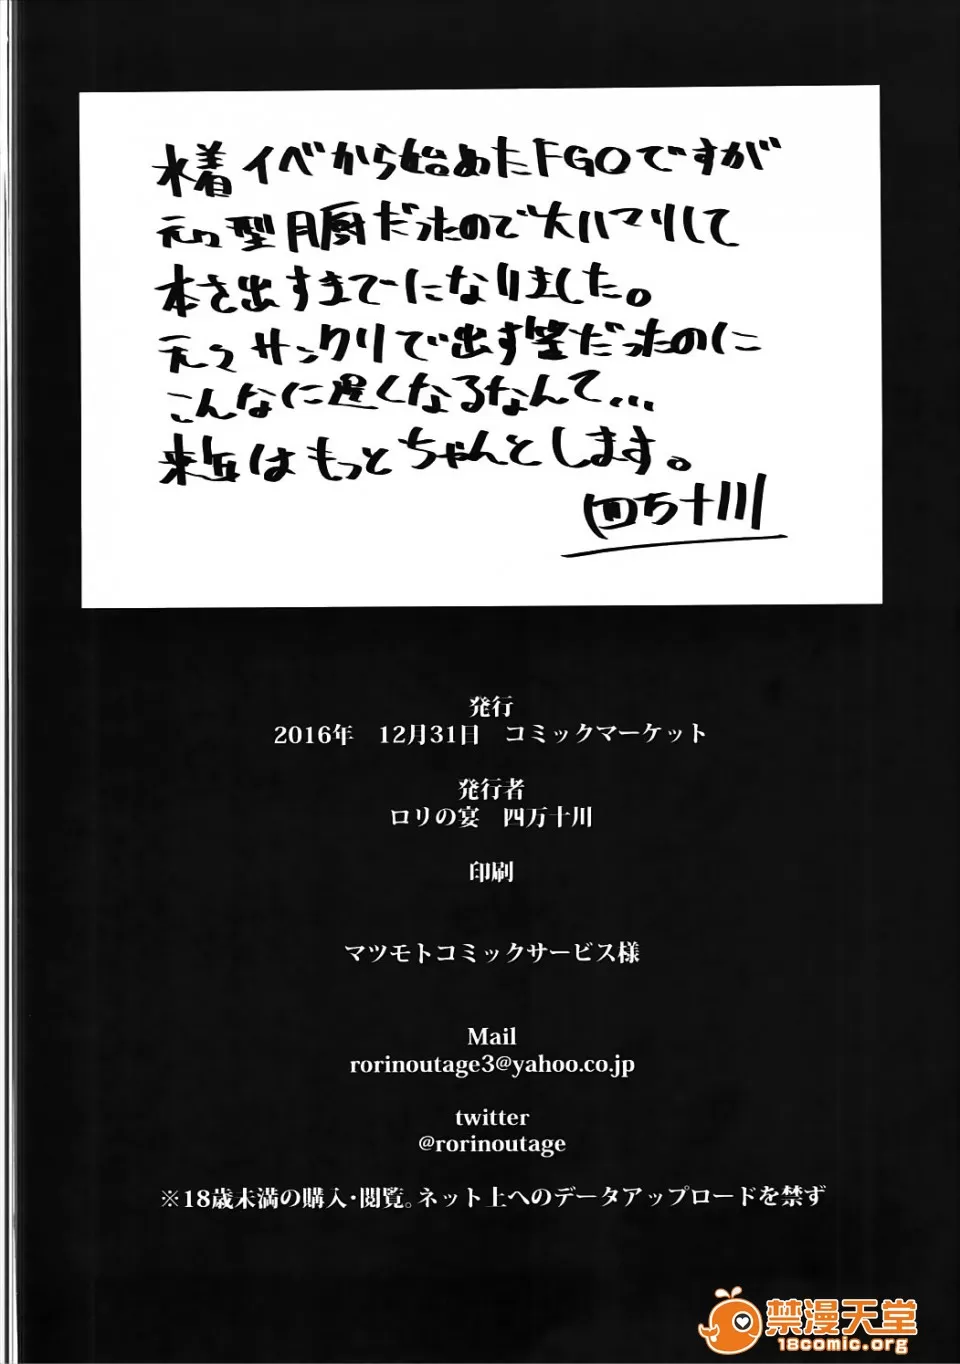 水着イベから始めたFGOですが
元々型月厨だったので大ハマりして
本を出すまでになりました。
元々サンクリで出す筈だったのに
こんなに遅くなるなんて...
来年はもっとちゃんとします。
四万十川
発行
2016年 12月31日 コミックマーケット
発行者
ロリの宴 四万十川
印刷
マツモトコミックサービス様
Mail
rorinoutage3@yahoo.co.jp
twitter
@rorinoutage
※18歳未満の購入・閲覧。ネット上へのデータアップロードを禁ず
禁漫天堂
18comic.org